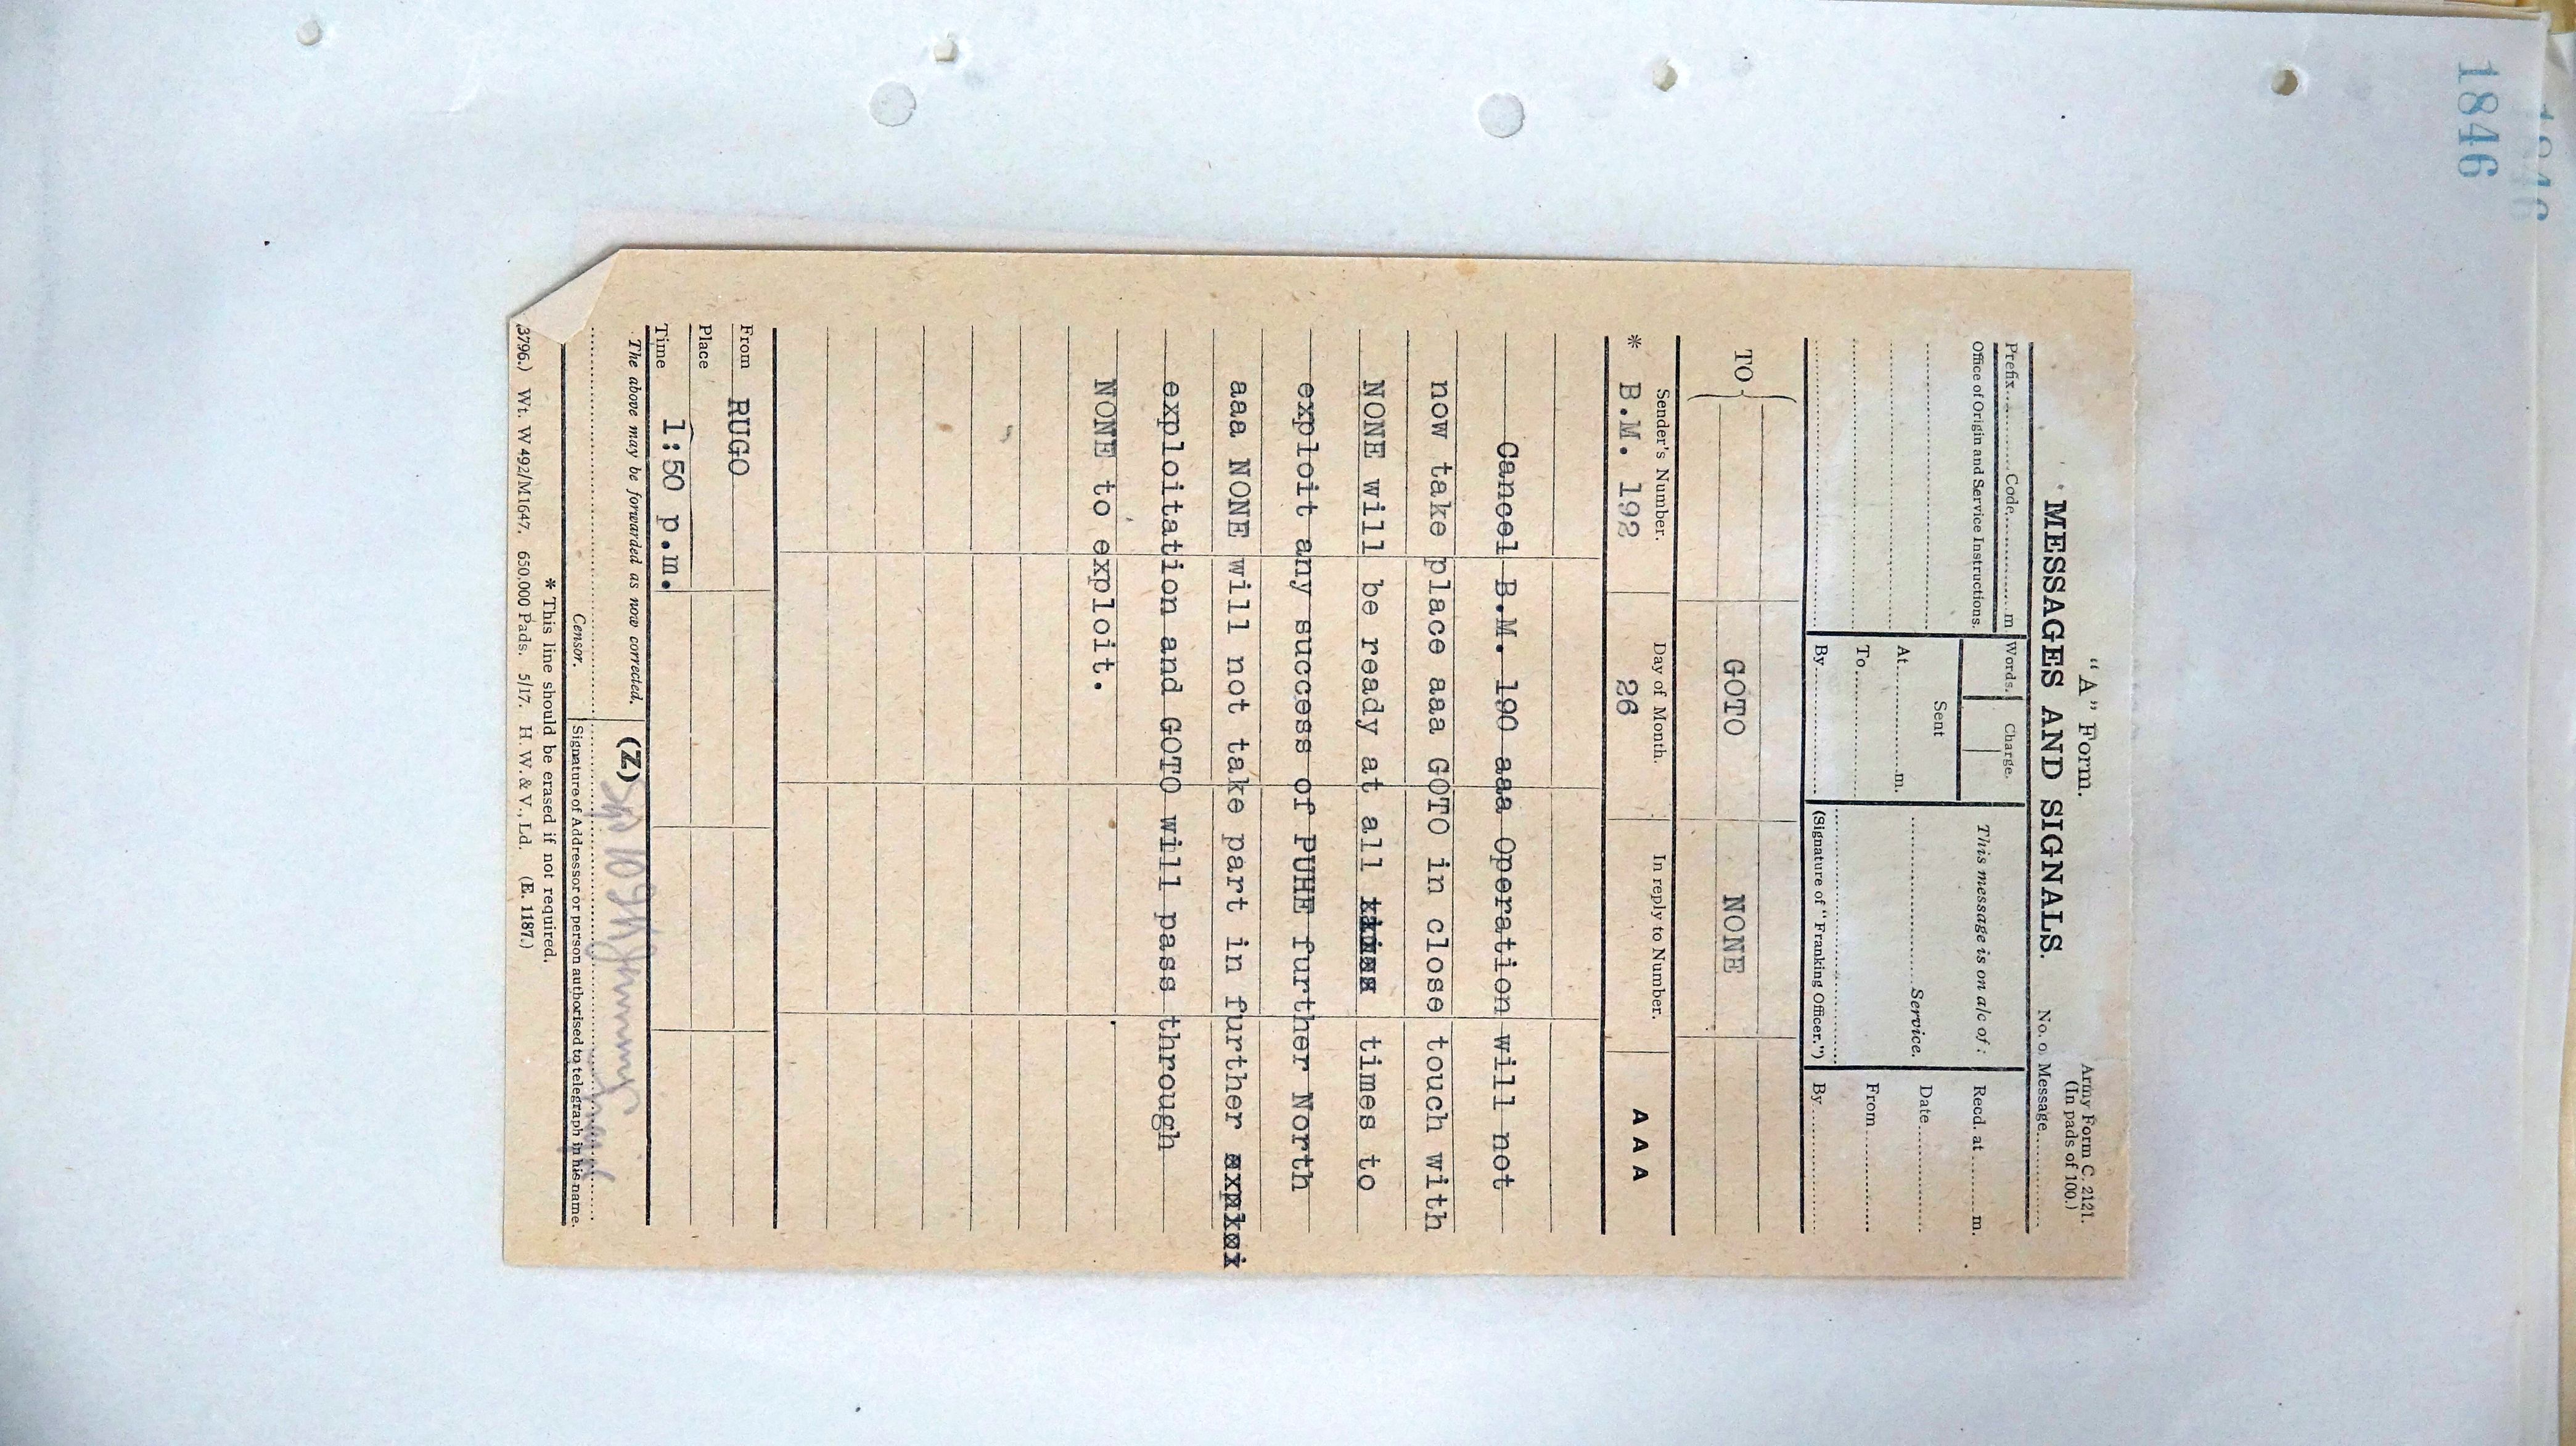 1846
"A" Form.
Army Form C. 2121.
(In pads of 100.)
MESSAGES AND SIGNALS.
No. o. Message..........
Prefix..........Code..........m
Words.
Charge.
This message is on a/c of:
Recd. at..........m.
Office of Origin and Service Instructions.
Sent
At..........m.
..........Service.
Date..........
To..........
From..........
By..........
(Signature of "Franking Officer.")
By..........
TO
GOTO
NONE
Sender's Number.
Day of Month.
In reply to Number.
* B.M. 192
26
AAA
Cancel B.M. 190 aaa Operation will not
now take place aaa GOTO in close touch with
NONE will be ready at all times to
exploit any success of PUHE further North
aaa NONE will not take part in further
exploitation and GOTO will pass through
NONE to exploit.
From RUGO
Place
Time 1:50 p.m.
The above may be forwarded as now corrected.
(Z)
Censor.
Signature of Addressor or person authorised to telegraph in his name.
* This line should be erased if not required.
3796.) Wt. W 492/M1647. 650,000 Pads. 5/17. H. W. & V., Ld. (E. 1187.)